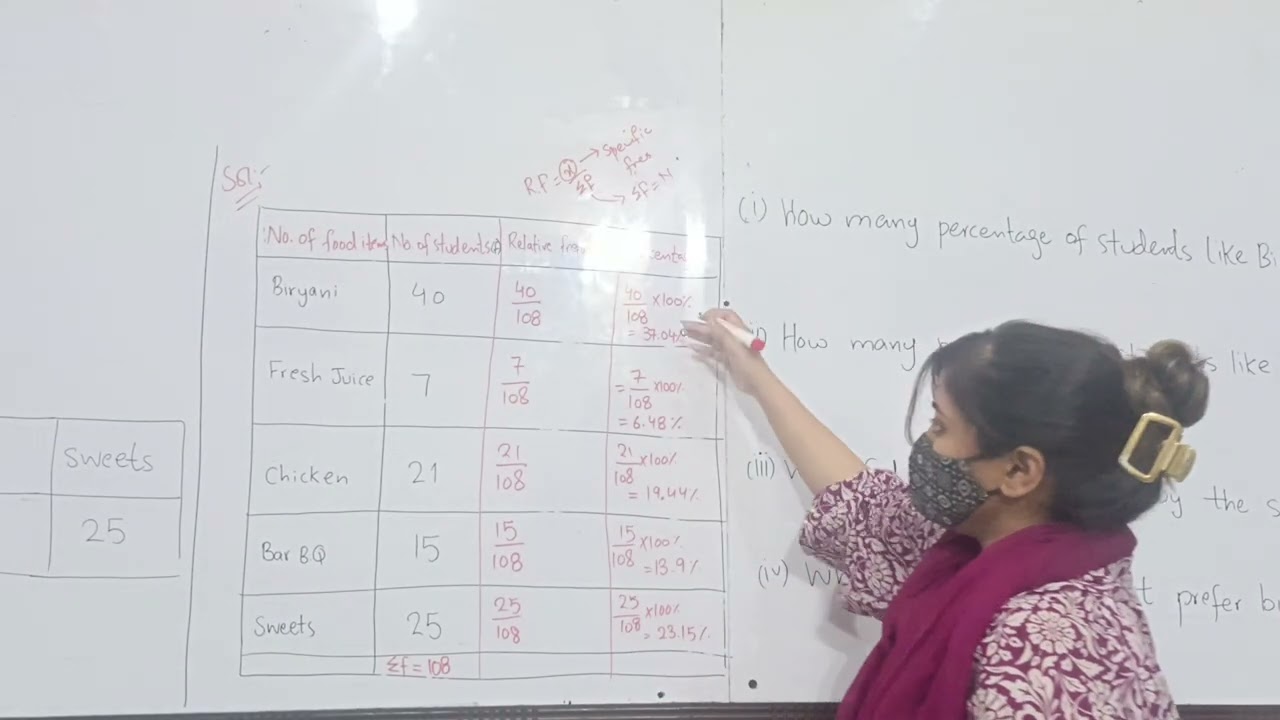 Sol:
RF = x/Σf → specific fres
→ Σf = N
No. of food items No of students(f) Relative
Biryani 40 40/108 40/108 ×100%
= 37.04%
Fresh Juice 7 7/108 = 7/108 ×100%
= 6.48%
Chicken 21 21/108 21/108 ×100%
= 19.44%
Bar BQ 15 15/108 15/108 ×100%
= 13.9%
Sweets 25 25/108 25/108 ×100%
= 23.15%
Σf = 108
Sweets
25
(i) How many percentage of students like Bi
How many s like
(iii)
y the s
(iv)
t prefer b